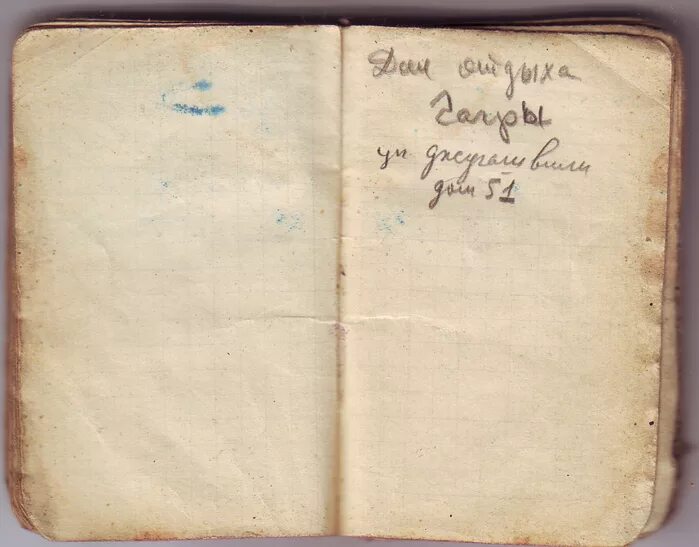 Дом отдыха
Гагры
ул джугашвили
дом 51